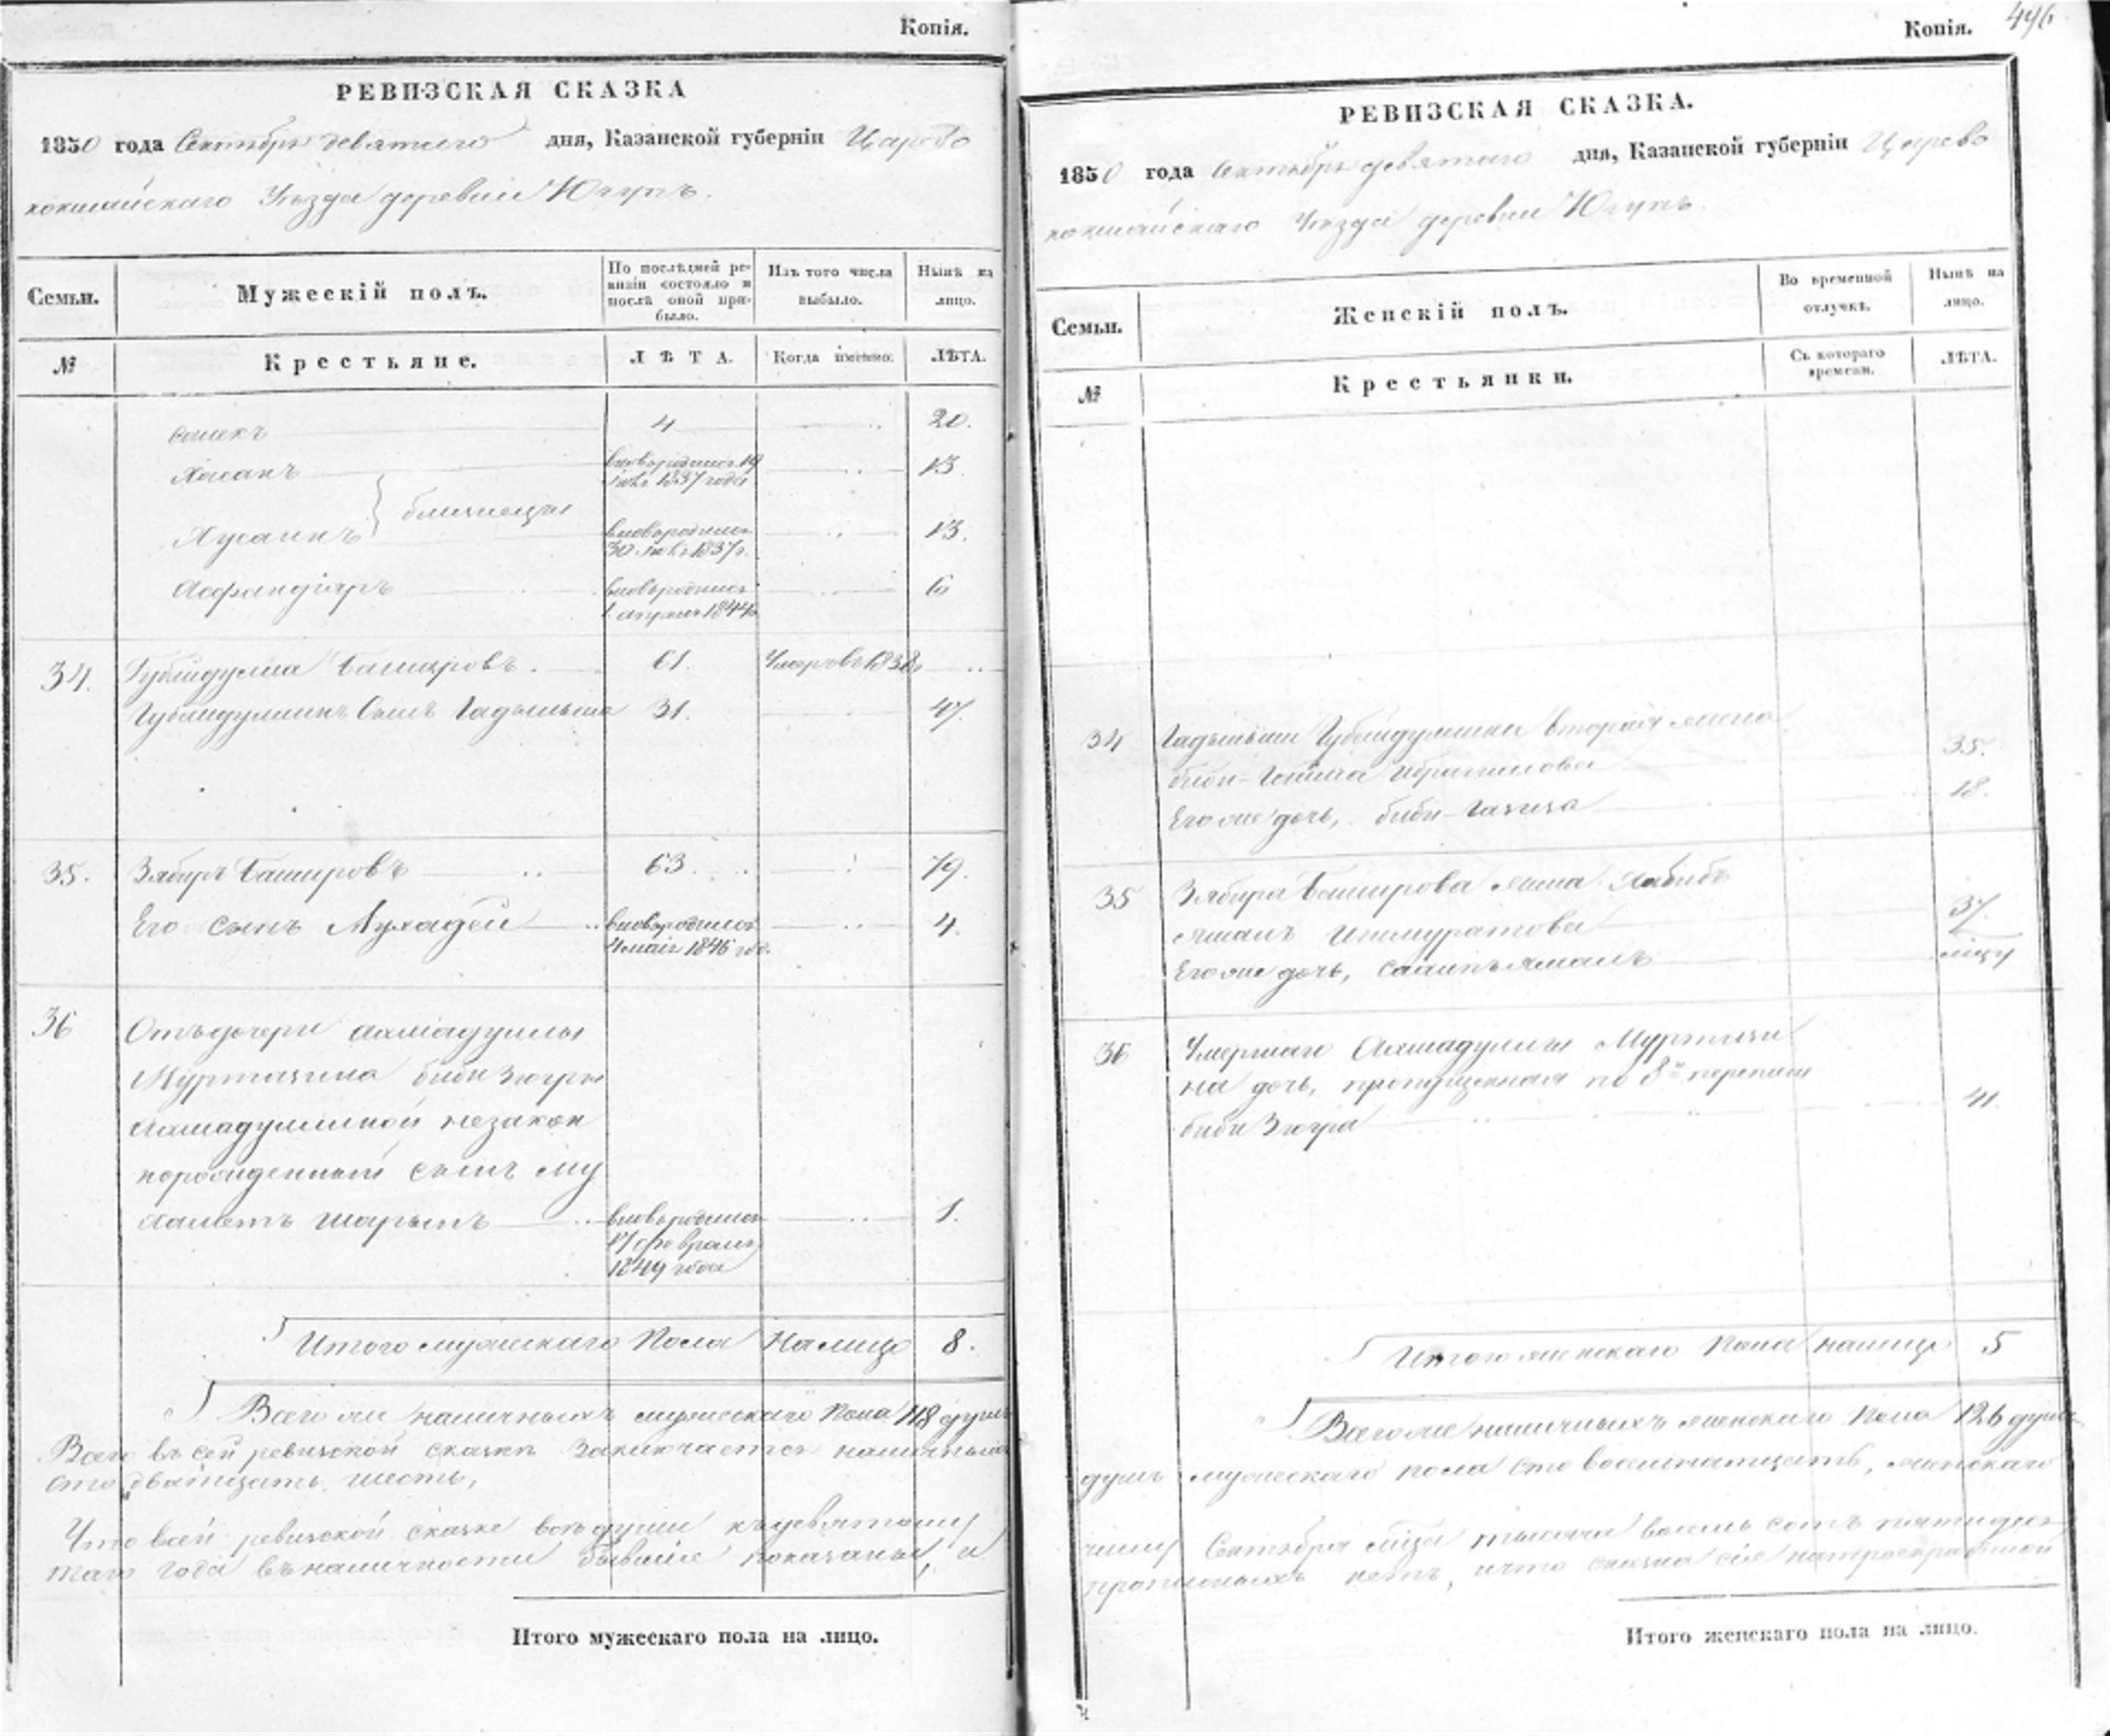 Копія.
РЕВИЗСКАЯ СКАЗКА
1850 года Сентября девятаго дня, Казанской губерніи Царево
кокшайскаго Уѣзда деревни Югупъ.
Семьи.
Мужескій полъ.
По послѣдней ре-
визіи состояло и
послѣ оной при-
было.
Изъ того числа
выбыло.
Нынѣ на
лицо.
№
Крестьяне.
ЛѢТА.
Когда именно.
ЛѢТА.
4 20.
Хасанъ вновьродился 19 13.
1837 года
близнецы
Хусаинъ вновьродился 13.
30 1837 г.
Асфандіяръ вновьродился 6
1 апреля 1844
34. Губайдулла Башировъ 61. Умеръ въ 1838
Губайдуллинъ Сынъ Гадыльша 31. 47.
35. Зябиръ Башировъ 63. 79.
Его сынъ Мухадей вновьродился 4.
4 маія 1846 го.
36 Отъ дочери Ахмадуллы
Муртазина биби Зюгры
Ахмадуллиной незакон
норожденный сынъ Му
хаметъ Шарыпъ вновьродился 1.
17 февраля
1849 года
Итого мужескаго Пола Налицо 8.
Всего же наличныхъ мужескаго Пола 118 душъ
Всего въ сей ревизской сказкѣ заключается наличныхъ
сто дватцать шесть,
Что въ сей ревизской сказке все души къ девятому
таго года въ наличности бывшіе показаны, и
Итого мужескаго пола на лицо.
Копія. 446
РЕВИЗСКАЯ СКАЗКА.
1850 года Сентября девятаго дня, Казанской губерніи Царево
кокшайскаго Уѣзда деревни Югупъ.
Семьи.
Женскій полъ.
Во временной
отлучкѣ.
Нынѣ на
лицо.
№
Крестьянки.
Съ котораго
времени.
ЛѢТА.
34 Гадыльши Губайдуллина вторая жена
биби Ибрагимова 35.
Его же дочь, биби Газиза 18.
35 Зябира Баширова жена Хабибъ
жамалъ Ишмуратова 37.
Его же дочь,
36 Умершаго Ахмадуллы Муртази
на дочь, пропущенная по 8й переписи
биби Зюгра 41.
Итого женскаго Пола налицо 5
Всего же наличныхъ женскаго Пола 126 душъ
душъ мужескаго пола сто восемнатцать, женскаго
числу Сентября мца тысяча восемь сотъ пятидеся
прописныхъ нетъ, и что сказка сія
Итого женскаго пола на лицо.